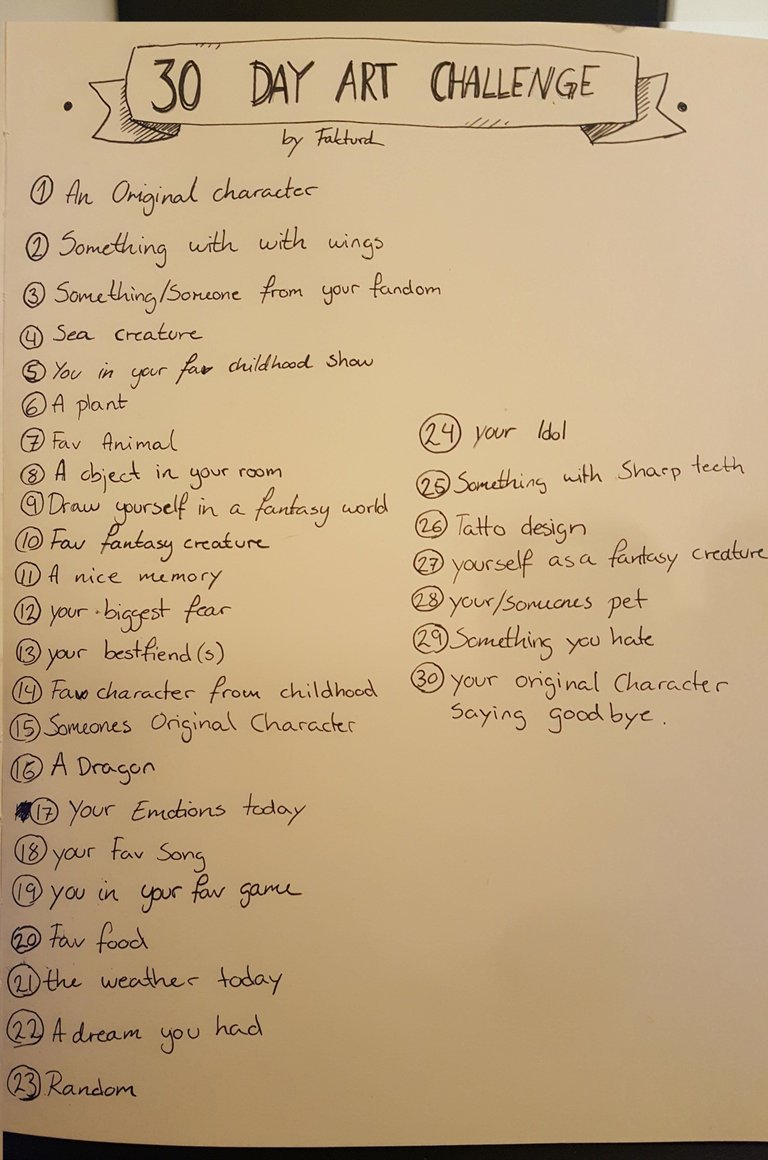 30 DAY ART CHALLENGE
by Fakturd
1 An Original character
2 Something with with wings
3 Something/Someone from your fandom
4 Sea creature
5 You in your fav childhood show
6 A plant
7 Fav Animal
8 A object in your room
9 Draw yourself in a fantasy world
10 Fav fantasy creature
11 A nice memory
12 your biggest fear
13 your bestfiend(s)
14 Fav character from childhood
15 Someones Original Character
16 A Dragon
17 Your Emotions today
18 your Fav Song
19 you in your fav game
20 Fav food
21 the weather today
22 A dream you had
23 Random
24 your Idol
25 Something with Sharp teeth
26 Tatto design
27 yourself as a fantasy creature
28 your/someones pet
29 Something you hate
30 your original Character
Saying goodbye.